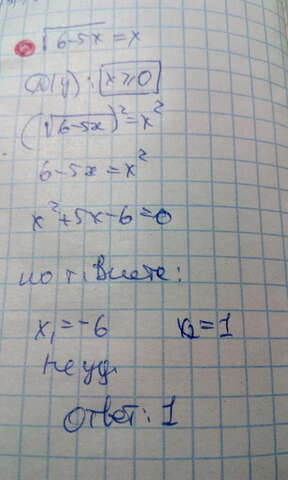 √6-5x = x
D(y): x≥0
(√6-5x)² = x²
6-5x = x²
x²+5x-6=0
по т. Виете:
x₁=-6 x₂=1
не уд.
Ответ: 1